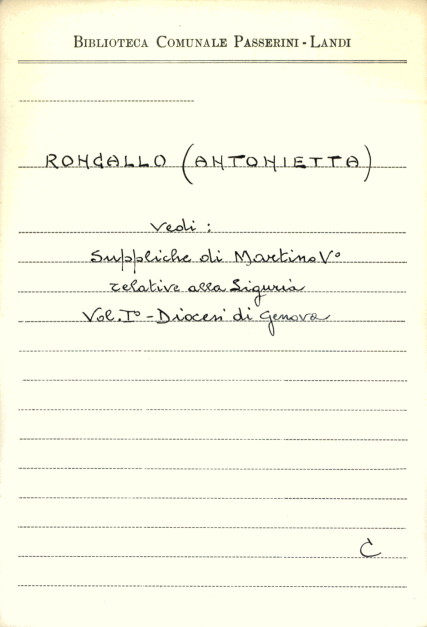 BIBLIOTECA COMUNALE PASSERINI - LANDI
RONGALLO (ANTONIETTA)
Vedi :
Suppliche di Martino V°
relative alla Liguria
Vol. I° - Diocesi di Genova
C